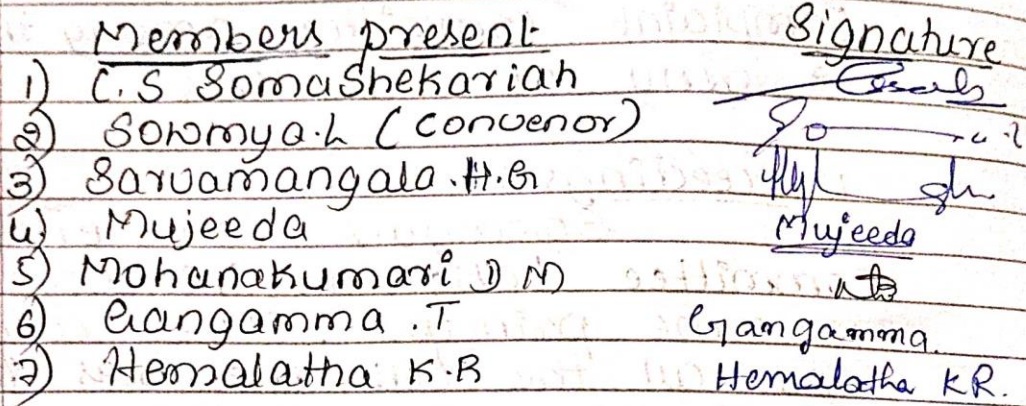 Members present Signature
1) C.S Somashekariah
2) Sowmya.L (Convenor)
3) Sarvamangala.H.G
4) Mujeeda Mujeeda
5) Mohanakumari D M
6) Gangamma .T Gangamma.
7) Hemalatha K.R Hemalatha KR.